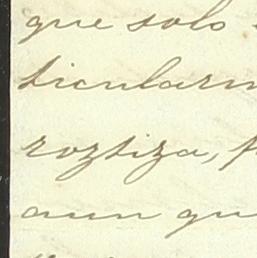 que solo
ticularm
roztiza, f
aun qu